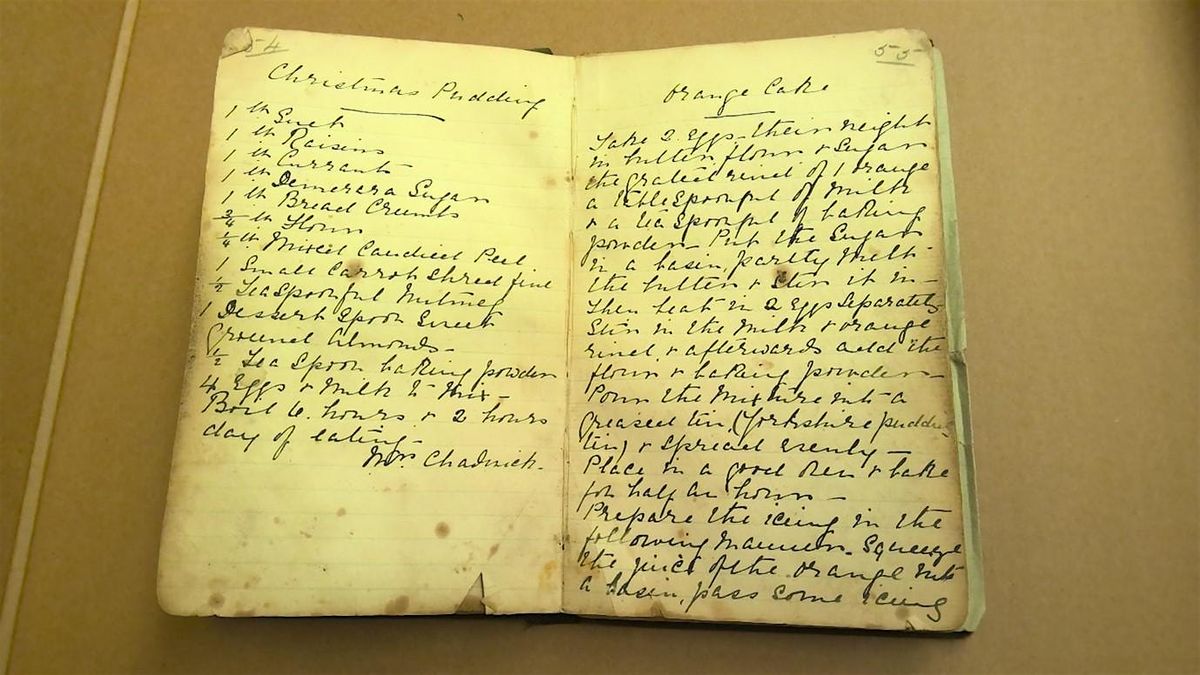 54
Christmas Pudding
1 lb Suet
1 lb Raisins
1 lb Currants
1 lb Demerara Sugar
1 lb Bread Crumbs
3/4 lb Flour
1/4 lb Mixed Candied Peel
1 Small Carrot Shred fine
1/2 TeaSpoonful Nutmeg
1 Dessert Spoon Sweet
Ground Almonds-
1/2 Tea Spoon baking powder
4 Eggs & Milk to Mix-
Boil 6. hours & 2 hours
day of eating-
Mrs Chadwick.
55
Orange Cake
Take 2 Eggs-their weight
in butter, flour & Sugar
the grated rind of 1 orange
a tableSpoonful of Milk
& a teaSpoonful of baking
powder- Put the Sugar
in a basin, partly Melt
the butter & Stir it in-
Then beat in 2 Eggs Separately
Stir in the Milk & orange
rind, & afterwards add the
flour & baking powder-
Pour the Mixture into a
greased tin, (Yorkshire pudding
tin) & Spread evenly-
Place in a good Oven & bake
for half an hour-
Prepare the icing in the
following Manner. Squeeze
the juice of the Orange into
a basin, pass Some icing